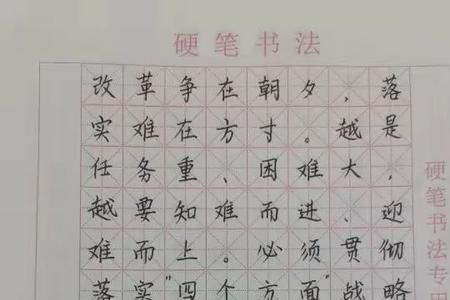 硬笔书法
改革争在朝夕，落
实难在方寸。越是
任务重、困难大，
越要知难而进、迎
难而上。必须贯彻
落实"四个方面"战略
硬笔书法专用